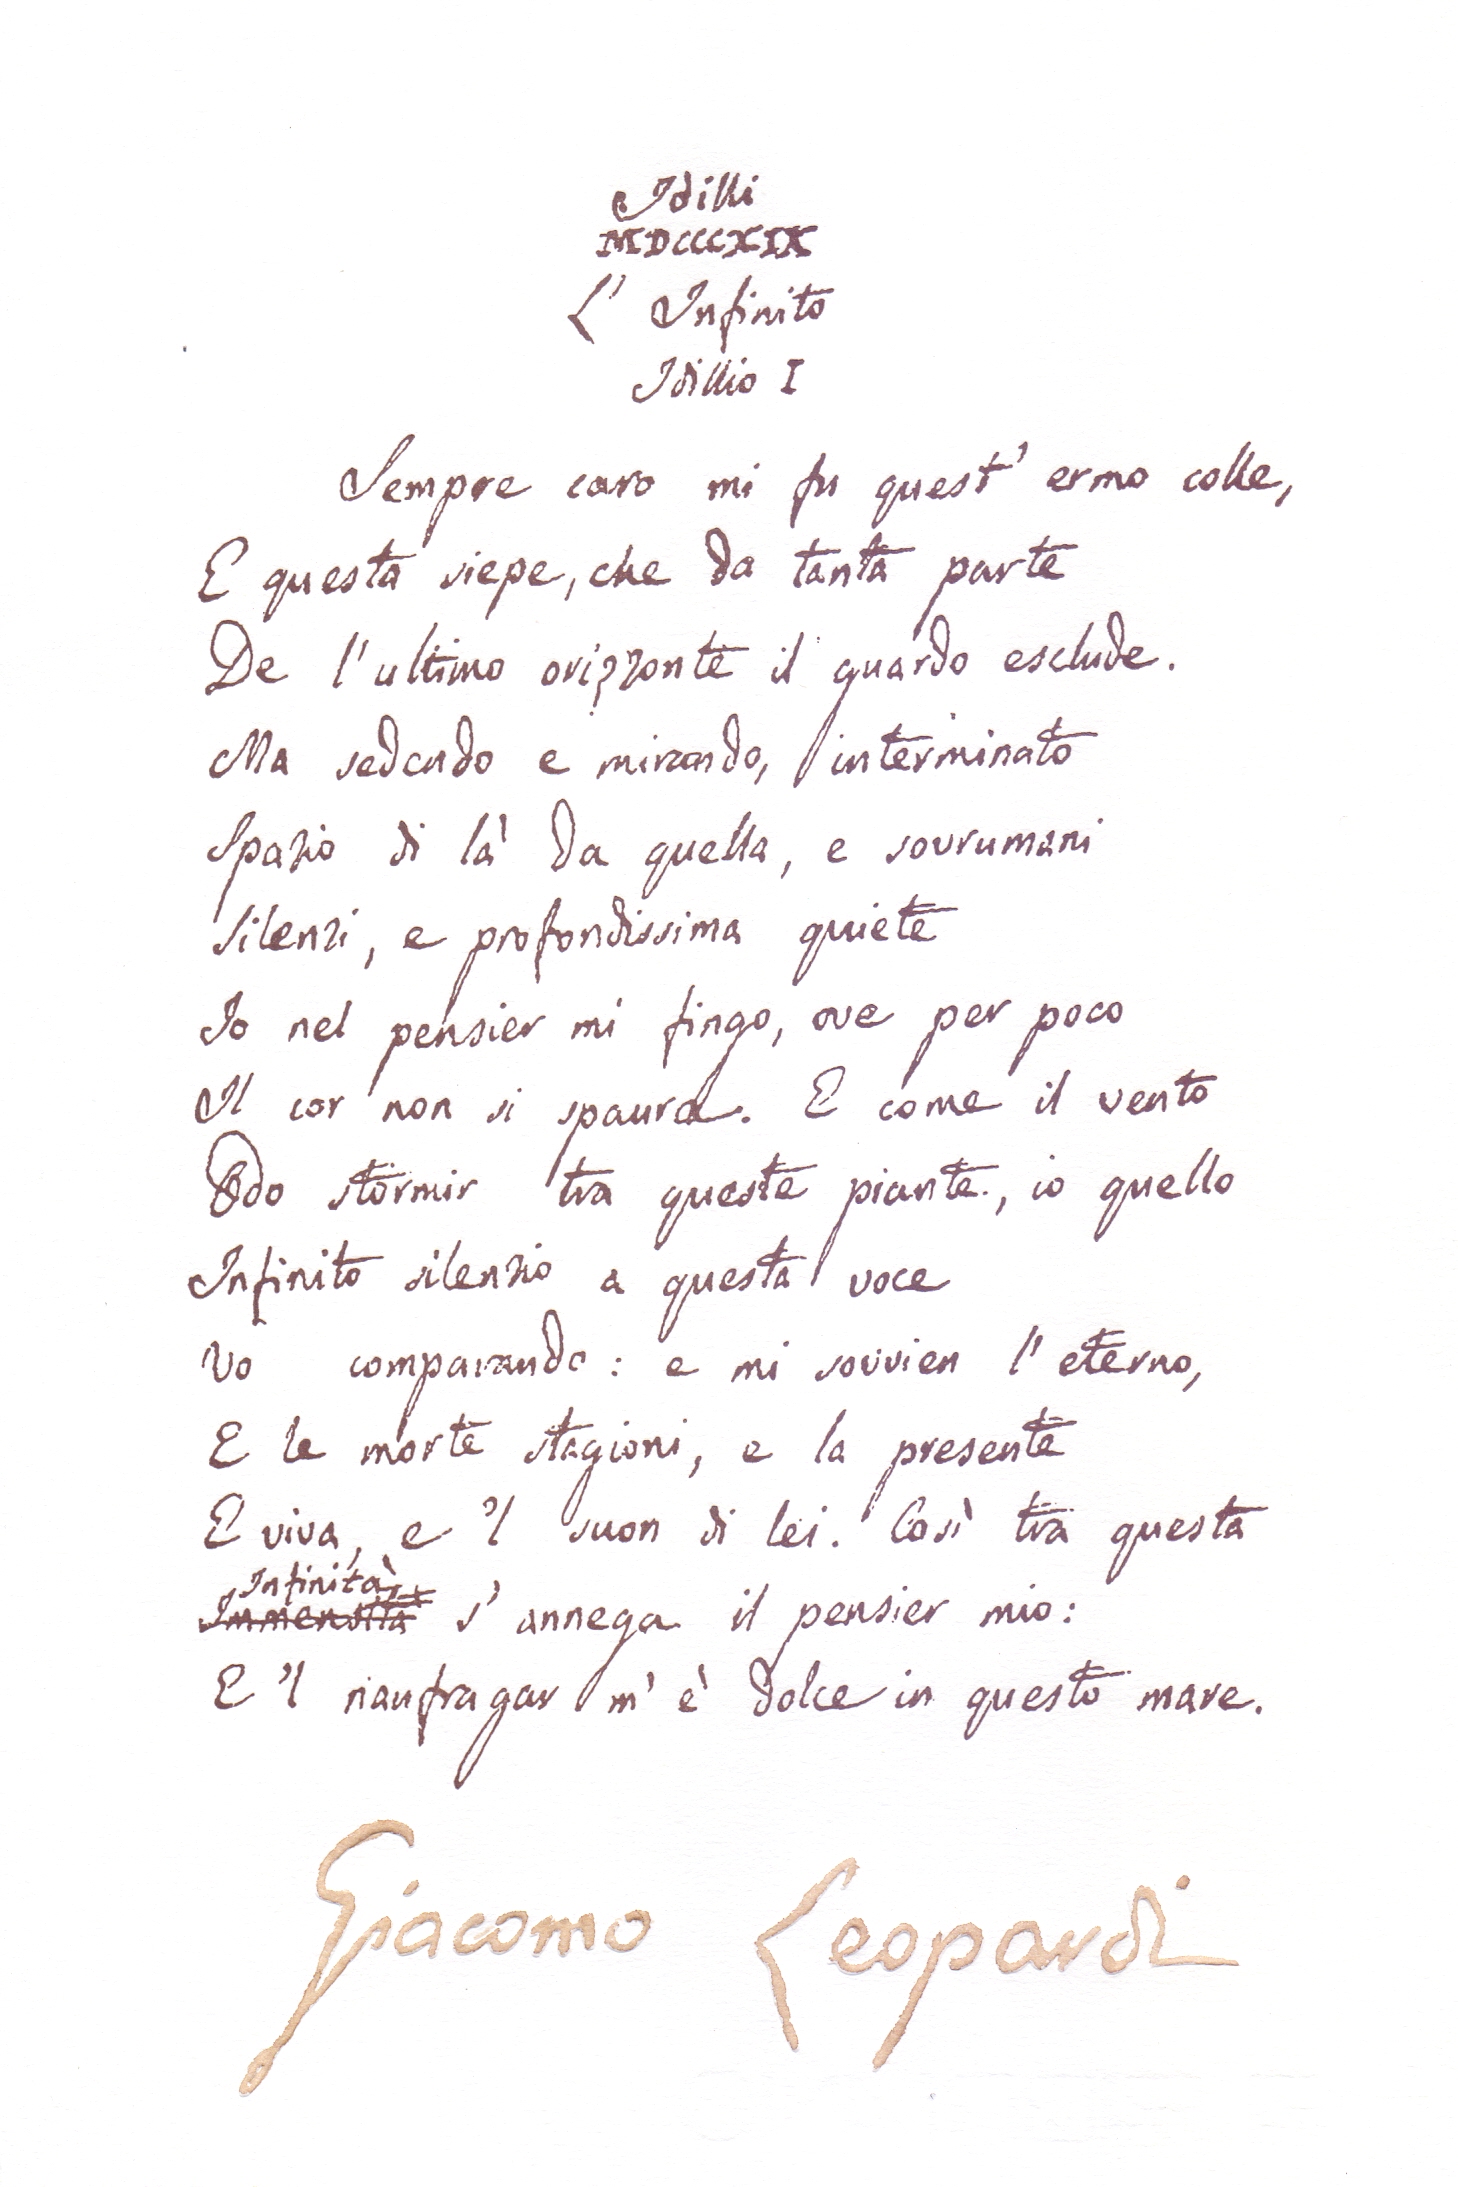 Idilli
MDCCCXIX
L' Infinito
Idillio I
Sempre caro mi fu quest' ermo colle,
E questa siepe, che da tanta parte
De l'ultimo orizzonte il guardo esclude.
Ma sedendo e mirando, interminato
Spazio di là da quella, e sovrumani
Silenzi, e profondissima quiete
Io nel pensier mi fingo, ove per poco
Il cor non si spaura. E come il vento
Odo stormir tra queste piante, io quello
Infinito silenzio a questa voce
Vo comparando: e mi sovvien l'eterno,
E le morte stagioni, e la presente
E viva, e 'l suon di lei. Così tra questa
Infinità
Immensità s' annega il pensier mio:
E 'l naufragar m' è dolce in questo mare.
Giacomo Leopardi